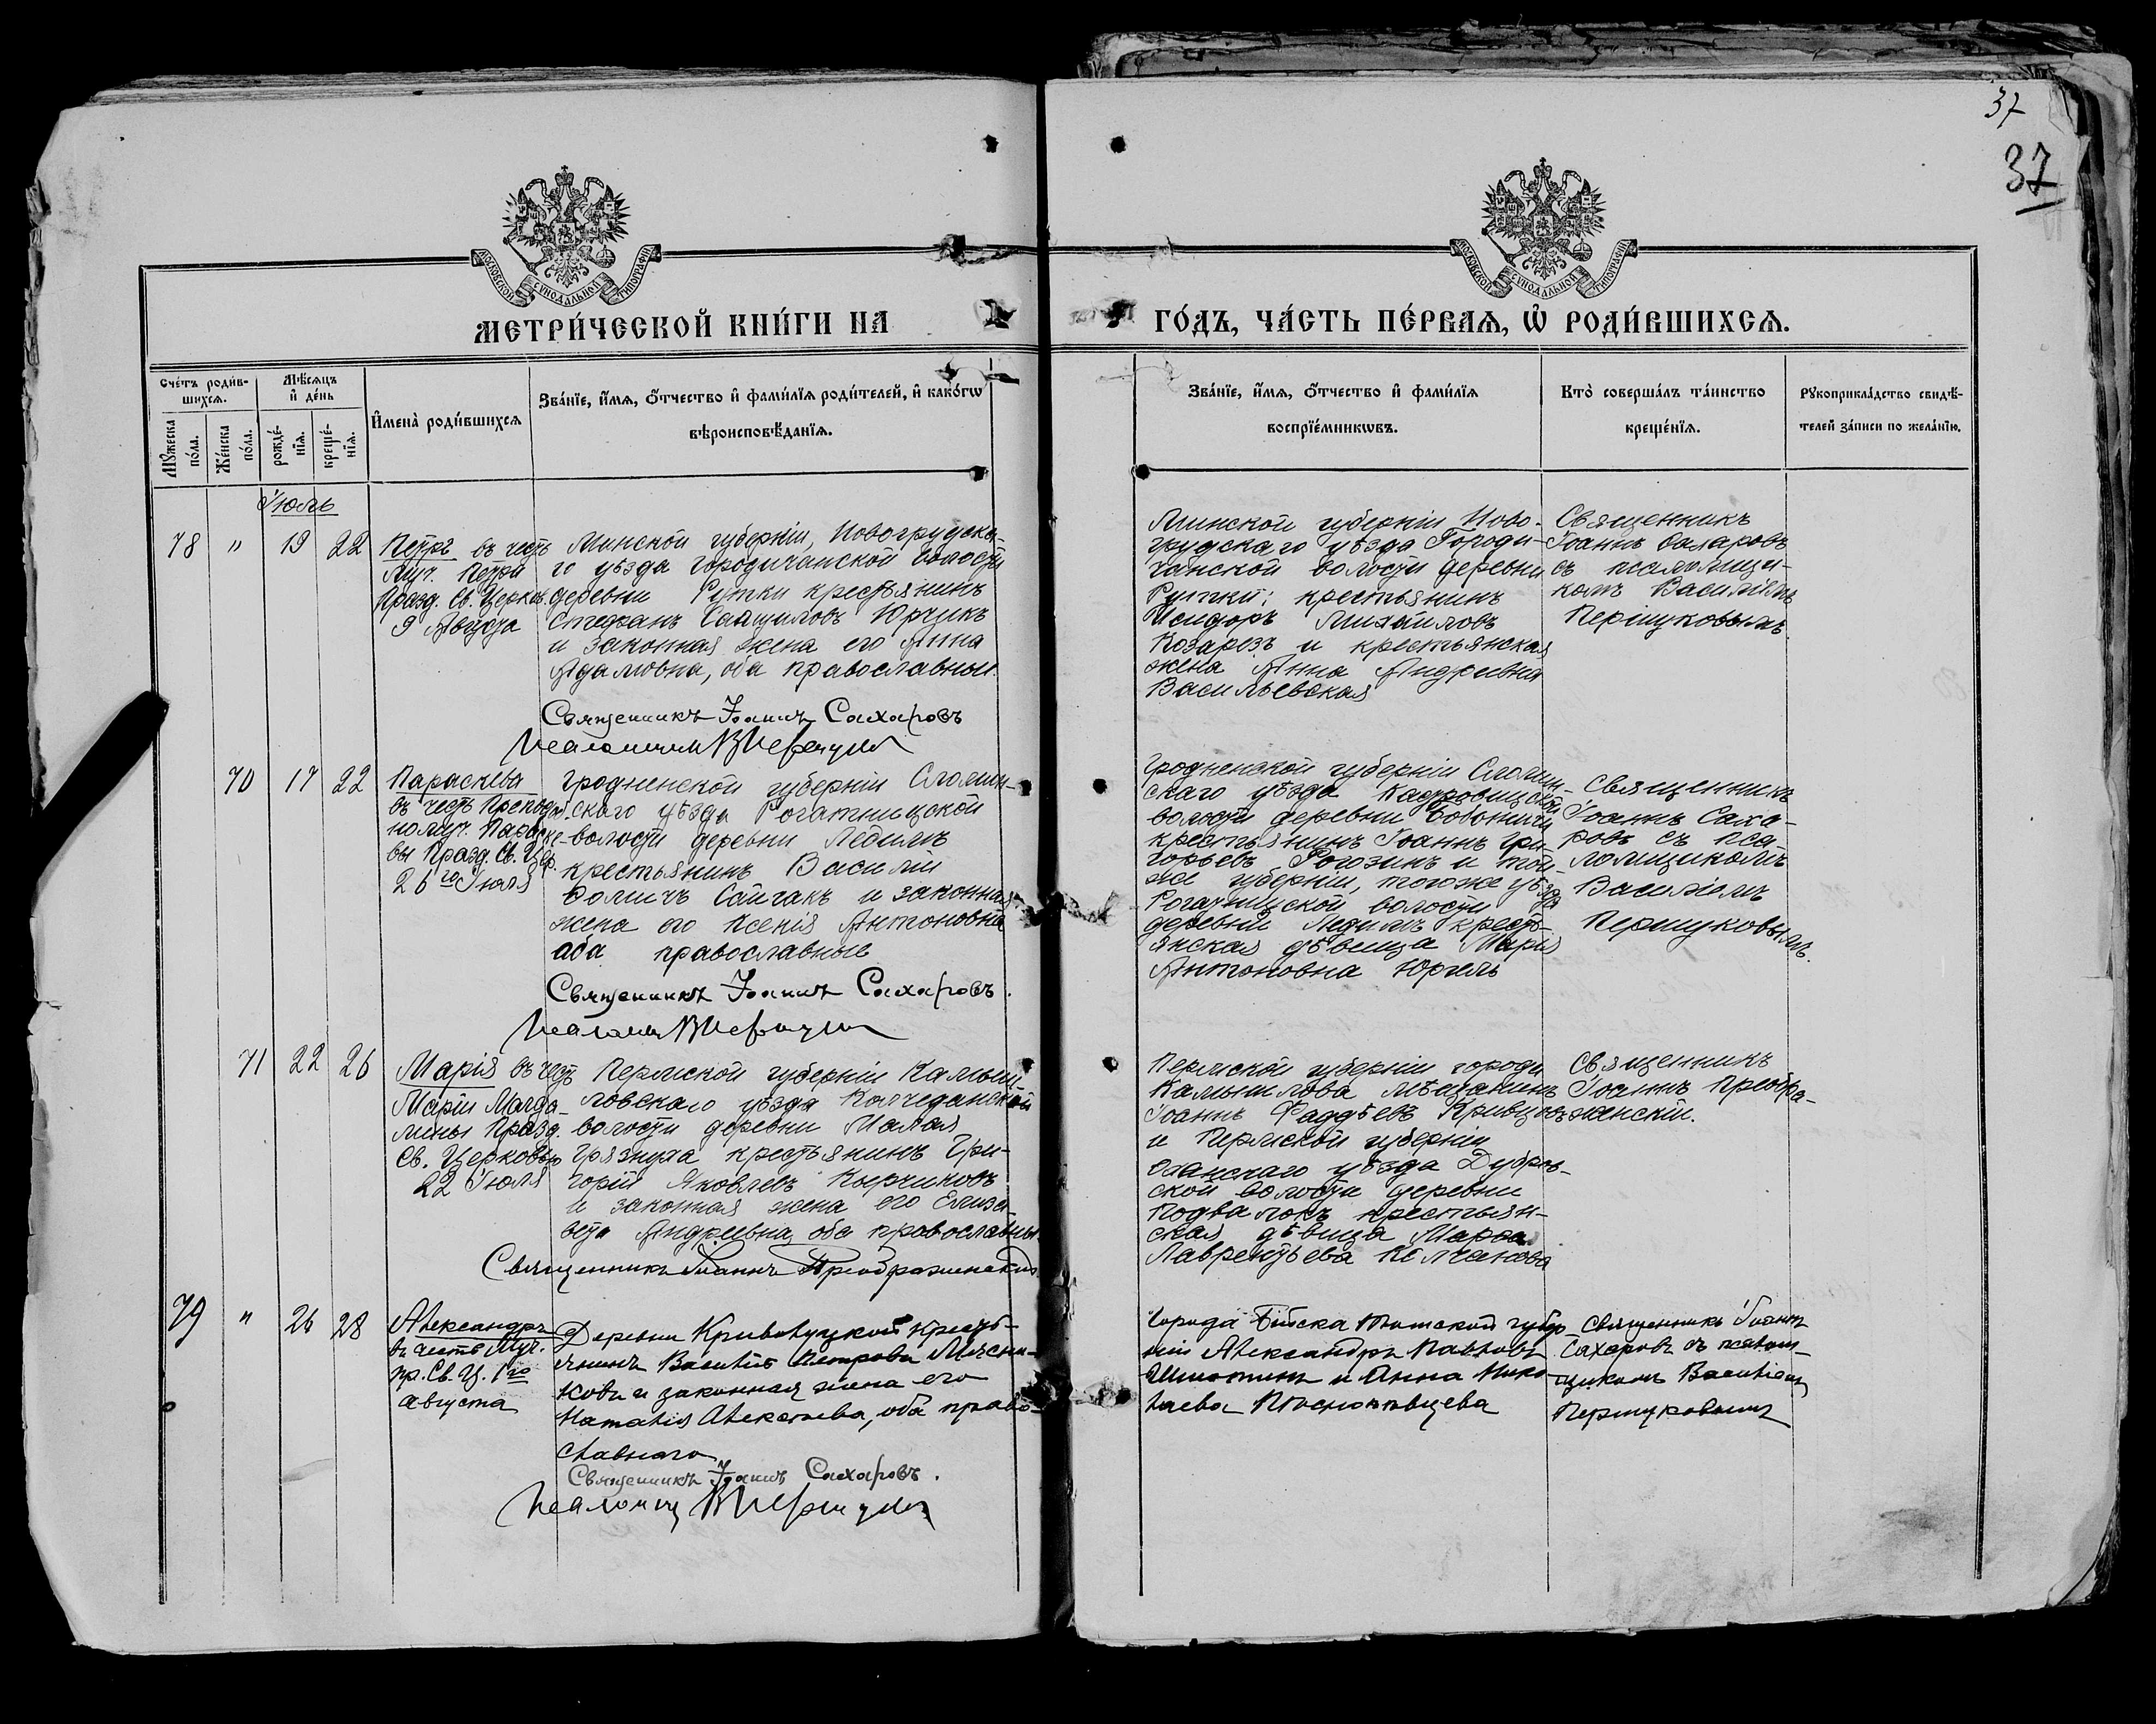 37
37
МОСКОВСКОЙ СѴНОДАЛЬНОЙ ТИПОГРАФІИ
МОСКОВСКОЙ СѴНОДАЛЬНОЙ ТИПОГРАФІИ
МЕТРИ́ЧЕСКОЙ КНИ́ГИ НА
ГО́ДЪ, ЧА́СТЬ ПЕ́РВАЯ, Ѡ РОДИ́ВШИХСЯ.
Сче́тъ роди́в-
шихся.
Мѣ́сяцъ
и҆ де́нь
Мꙋжеска
по́ла.
Же́нска
по́ла.
рожде́-
нїя.
креще́-
нїя.
И҆мена̀ роди́вшихся
Зва́нїе, и҆́мя, ѻ҆́тчество и҆ фами́лїя роди́телей, и҆ како́гѡ
вѣроисповѣ́данїя.
Зва́нїе, и҆́мя, ѻ҆́тчество и҆ фами́лїя
воспрїе́мникѡвъ.
Кто̀ соверша́лъ та́инство
креще́нїя.
Рꙋкоприкла́дство свидѣ́-
телей за́писи по жела́нїю.
Іюль
78 " 19 22
Петръ въ честь
Муч. Петра
Празд. Св. Церков.
9 Августа
Минской губерніи, Новогрудска-
го уѣзда Городичанской волости
деревни Рутки крестьянинъ
Стефанъ Юрчикъ
и законная жена его Анна
Адамовна, оба православные.
Священникъ Іоаннъ Сахаровъ
Минской губерніи Ново-
грудскаго уѣзда Городи-
чанской волости деревни
Рутки: крестьянинъ
Исидоръ Михаиловъ
Козарезъ и крестьянская
жена Анна Андреевна
Васильевская
Священникъ
Іоаннъ Сахаровъ
съ псаломщи-
комъ Василіемъ
Першуковымъ
70 17 22
Параскева
въ честь Преподоб.
номуч. Параске-
вы Празд. Св. Цер.
26го Іюля
Гродненской губерніи Слоним-
скаго уѣзда Роготницкой
волости деревни
крестьянинъ Василій
Сайгакъ и законная
жена его Ксенія Антоновна
оба православные
Священникъ Іоаннъ Сахаровъ.
Гродненской губерніи Слоним-
скаго уѣзда
волости деревни
крестьянинъ Іоаннъ Гри-
горьевъ Рогозинъ и той-
же губерніи, тогоже уѣзда
Роготницкой волости
деревни крестъ-
янская дѣвица Марія
Антоновна Юргель
Священникъ
Іоаннъ Саха-
ровъ съ пса-
ломщикомъ
Василіемъ
Першуковымъ.
71 22 26
Марія въ честь
Маріи Магда-
лины Празд.
Св. Церковью
22 Іюля
Пермской губерніи Камыш-
ловскаго уѣзда Колчеданской
волости деревни Малая
Грязнуха крестьянинъ Гри-
горій Яковлевъ Кырчиковъ
и законная жена его Елиза-
вета Андреевна, оба православны.
Священникъ Іоаннъ Преображенскій.
Пермской губерніи города
Камышлова мѣщанинъ
Іоаннъ Фаддѣевъ Кривцовъ
и Пермской губерніи
Оханскаго уѣзда Дубров-
ской волости деревни
Подволокъ крестьян-
ская дѣвица Марѳа
Лаврентьева Колчанова
Священникъ
Іоаннъ Преобра-
женскій.
79 " 26 28
Александръ
въ честь Муч.
пр. Св. Ц. 1го
августа
Деревни Криволуцкой кресть-
янинъ Василій Петровъ Мясни-
ковъ и законная жена его
Наталія Алексѣева, оба право-
славнаго.
Священникъ Іоаннъ Сахаровъ.
Города Бійска Томской губер-
ніи Александръ Павловъ
и Анна Нико-
лаева
Священникъ Іоаннъ
Сахаровъ съ псалом-
щикомъ Василіемъ
Першуковымъ